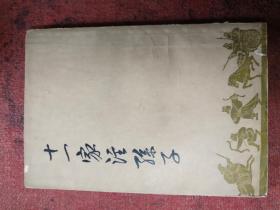 十一家注孫子